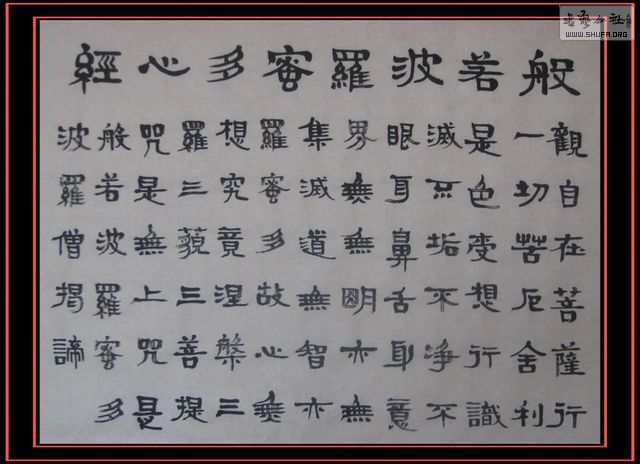 般若波羅蜜多心經
觀自在菩薩行
一切苦厄舍利
是色受想行識
滅不垢不淨不
眼耳鼻舌身意
界無無明亦無
集滅道無智亦
羅蜜多故心無
想究竟涅槃三
羅三藐三菩提
咒是無上咒是
般若波羅蜜多
波羅僧揭諦
WWW.SHUFA.ORG